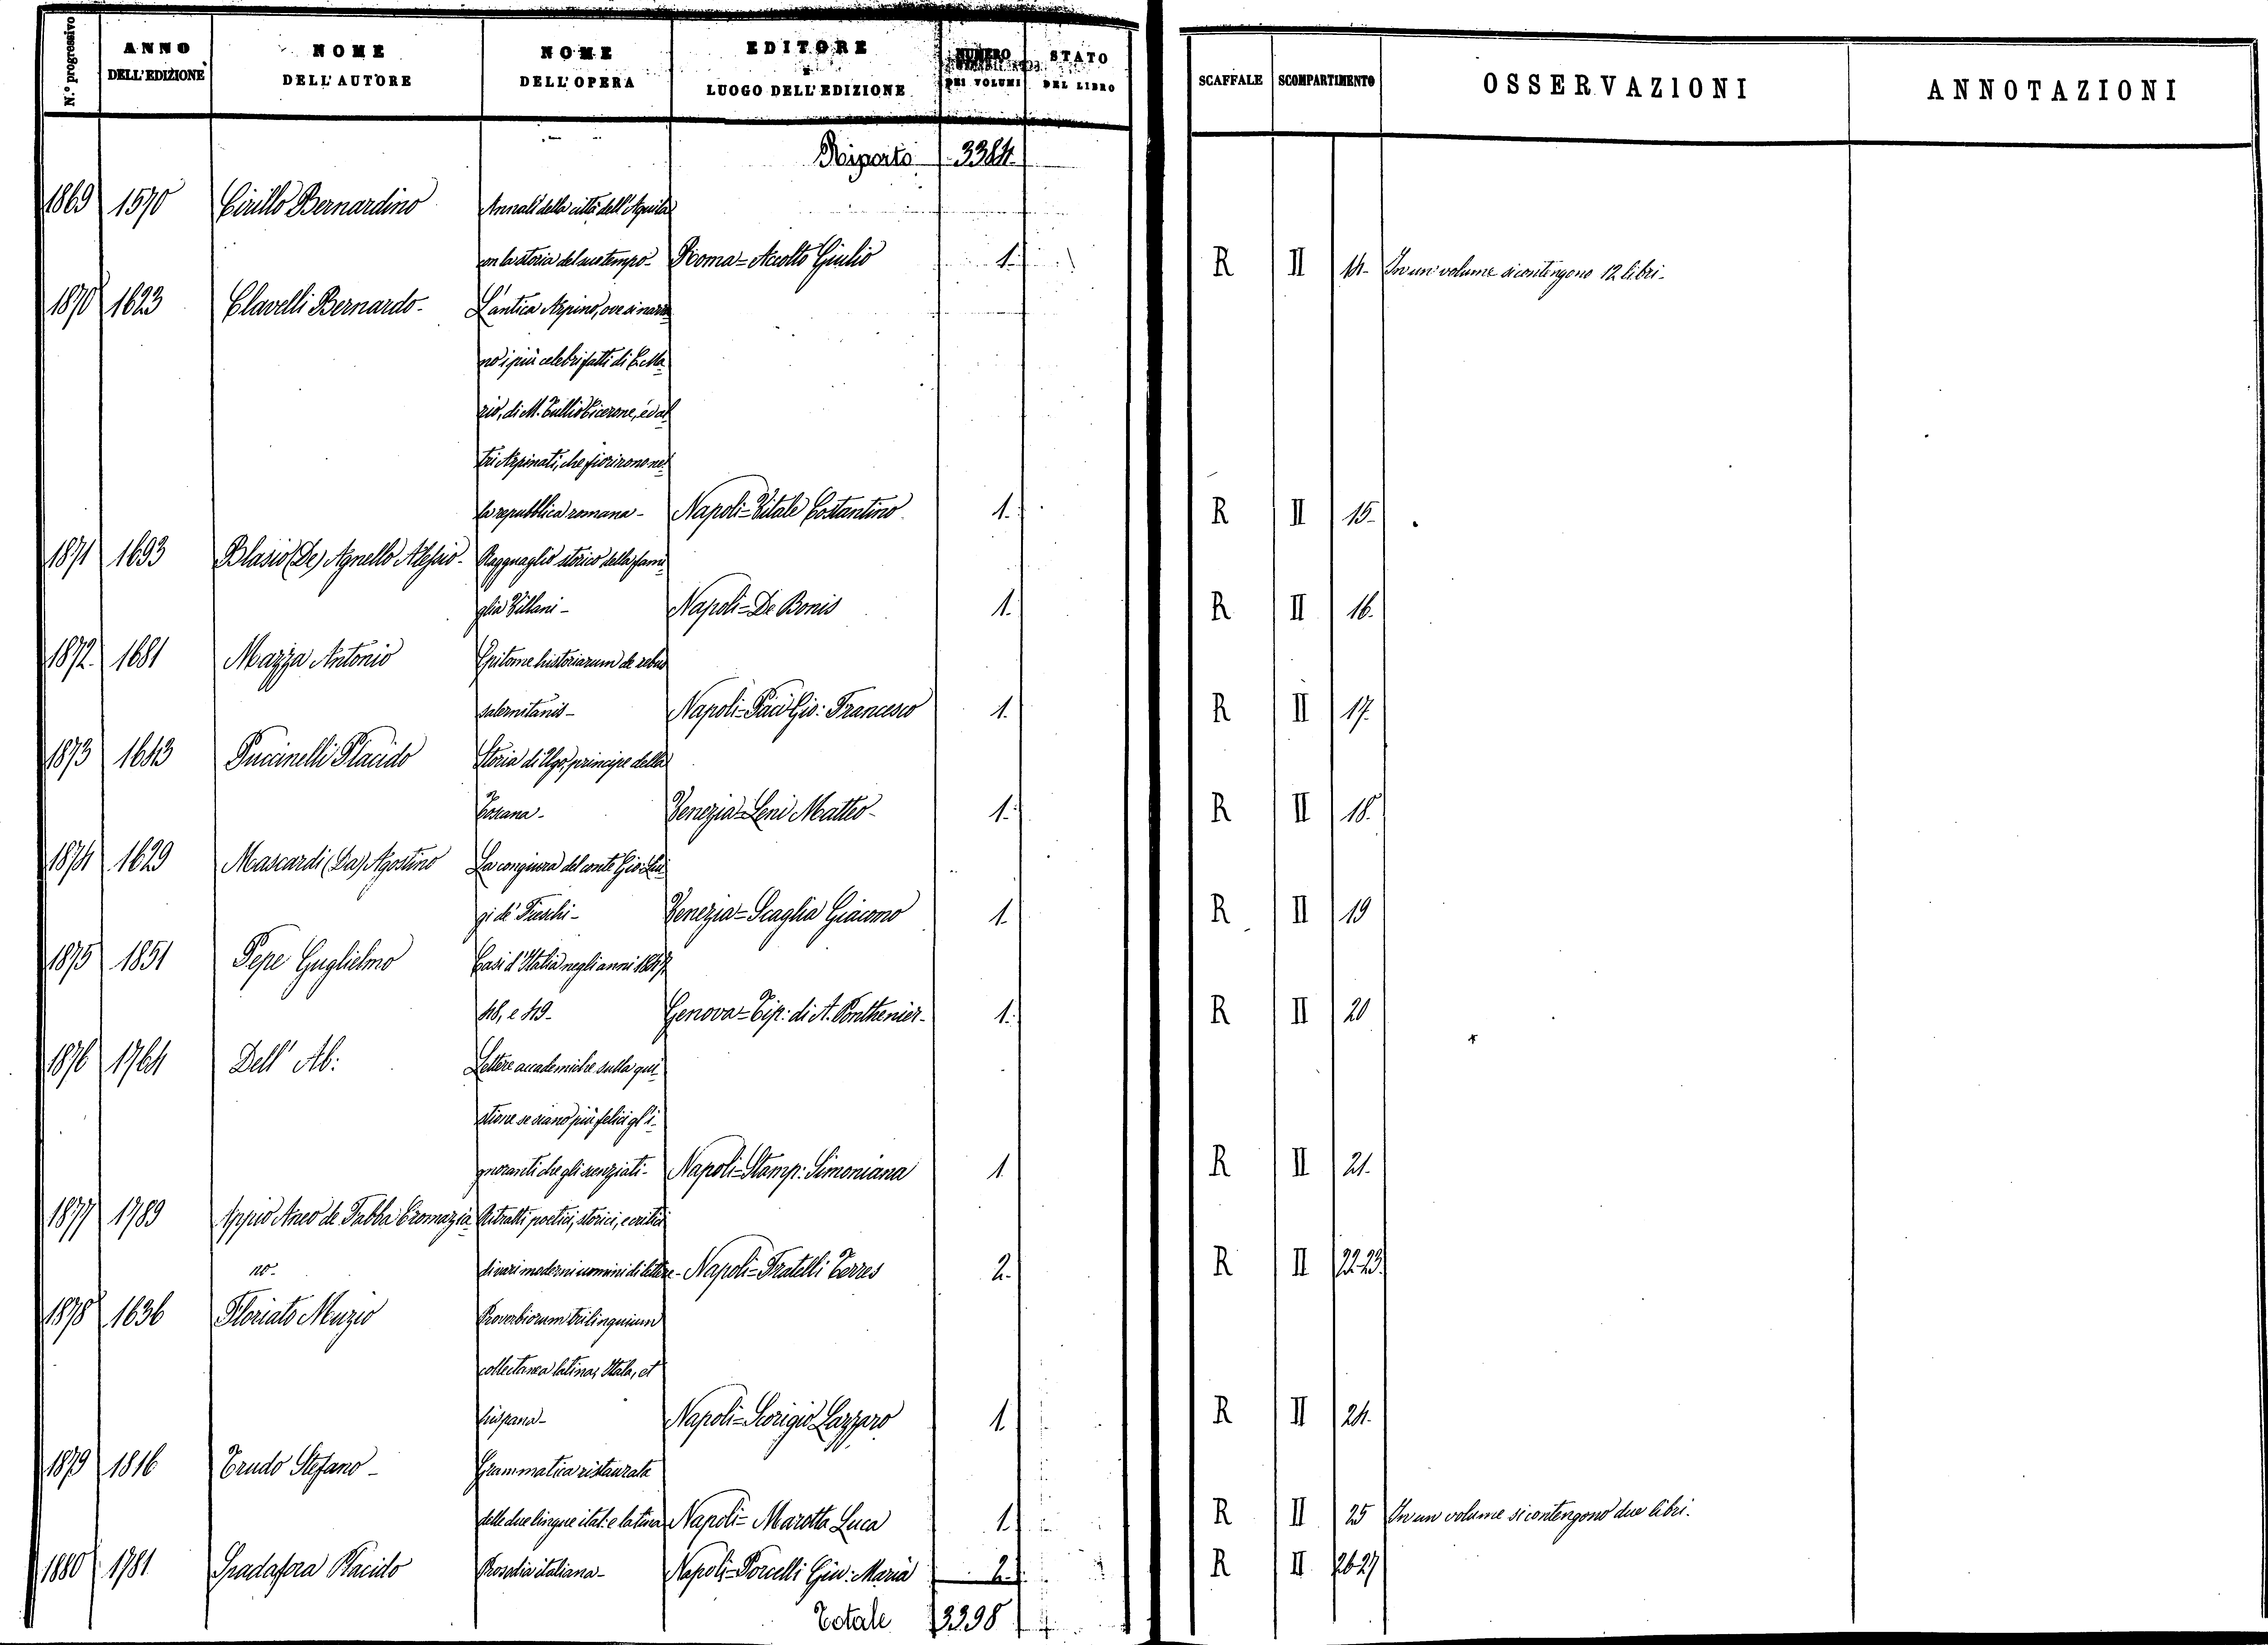 N.º progressivo | ANNO DELL'EDIZIONE | NOME DELL'AUTORE | NOME DELL'OPERA | EDITORE E LUOGO DELL'EDIZIONE | NUMERO DEI VOLUMI | STATO DEL LIBRO | SCAFFALE | SCOMPARTIMENTO | OSSERVAZIONI | ANNOTAZIONI
Riporto 3384
1869 1570 Cirillo Bernardino Annali della città dell'Aquila
con la storia del suo tempo- Roma=Accolto Giulio 1. R II 14. In un volume si contengono 12 libri-
1870 1623 Clavelli Bernardo- L'antica Arpino, ove si narra
no i più celebri fatti di C. Ma
rio, di M. Tullio Cicerone, ed al
tri Arpinati, che fiorirono nel
la repubblica romana- Napoli=Vitale Costantino 1. R II 15.
1871 1693 Blasio (De) Agnello Alessio- Ragguaglio storico della fami
glia Villani- Napoli=De Bonis 1. R II 16.
1872. 1681 Mazza Antonio Epitome historiarum de rebus
salernitanis- Napoli=Paci Gio: Francesco 1. R II 17.
1873 1643 Puccinelli Placido Storia di Ugo, principe della
Toscana- Venezia=Leni Matteo- 1. R II 18.
1874 1629 Mascardi (Da) Agostino La congiura del conte Gio: Lui
gi de' Fieschi- Venezia=Scaglia Giacomo 1. R II 19
1875 1851 Pepe Guglielmo Casi d'Italia negli anni 1847,
48, e 49- Genova=Tip: di A. Ponthenier- 1. R II 20
1876 1764 Dell' Ab: Lettere accademiche sulla qui
stione se siano più felici gl'i-
gnoranti che gli scenziati- Napoli=Stamp: Simoniana 1 R II 21.
1877 1789 Appio Aneo de Fabba Cromazia Ritratti poetici, storici, e critici
no- di vari moderni uomini di lettere- Napoli=Fratelli Terres 2. R II 22-23.
1878 1636 Floriato Muzio Proverbiorum trilinguium
collectanea latina, Itala, et
hispana- Napoli=Scorigio Lazzaro 1. R II 24.
1879 1816 Trudo Stefano- Grammatica ristaurata
delle due lingue ital: e latina Napoli= Marotta Luca 1. R II 25 In un volume si contengono due libri.
1880 1781 Spadafora Placido Prosodia italiana- Napoli=Porcelli Giu: Maria 2. R II 26-27
Totale 3398